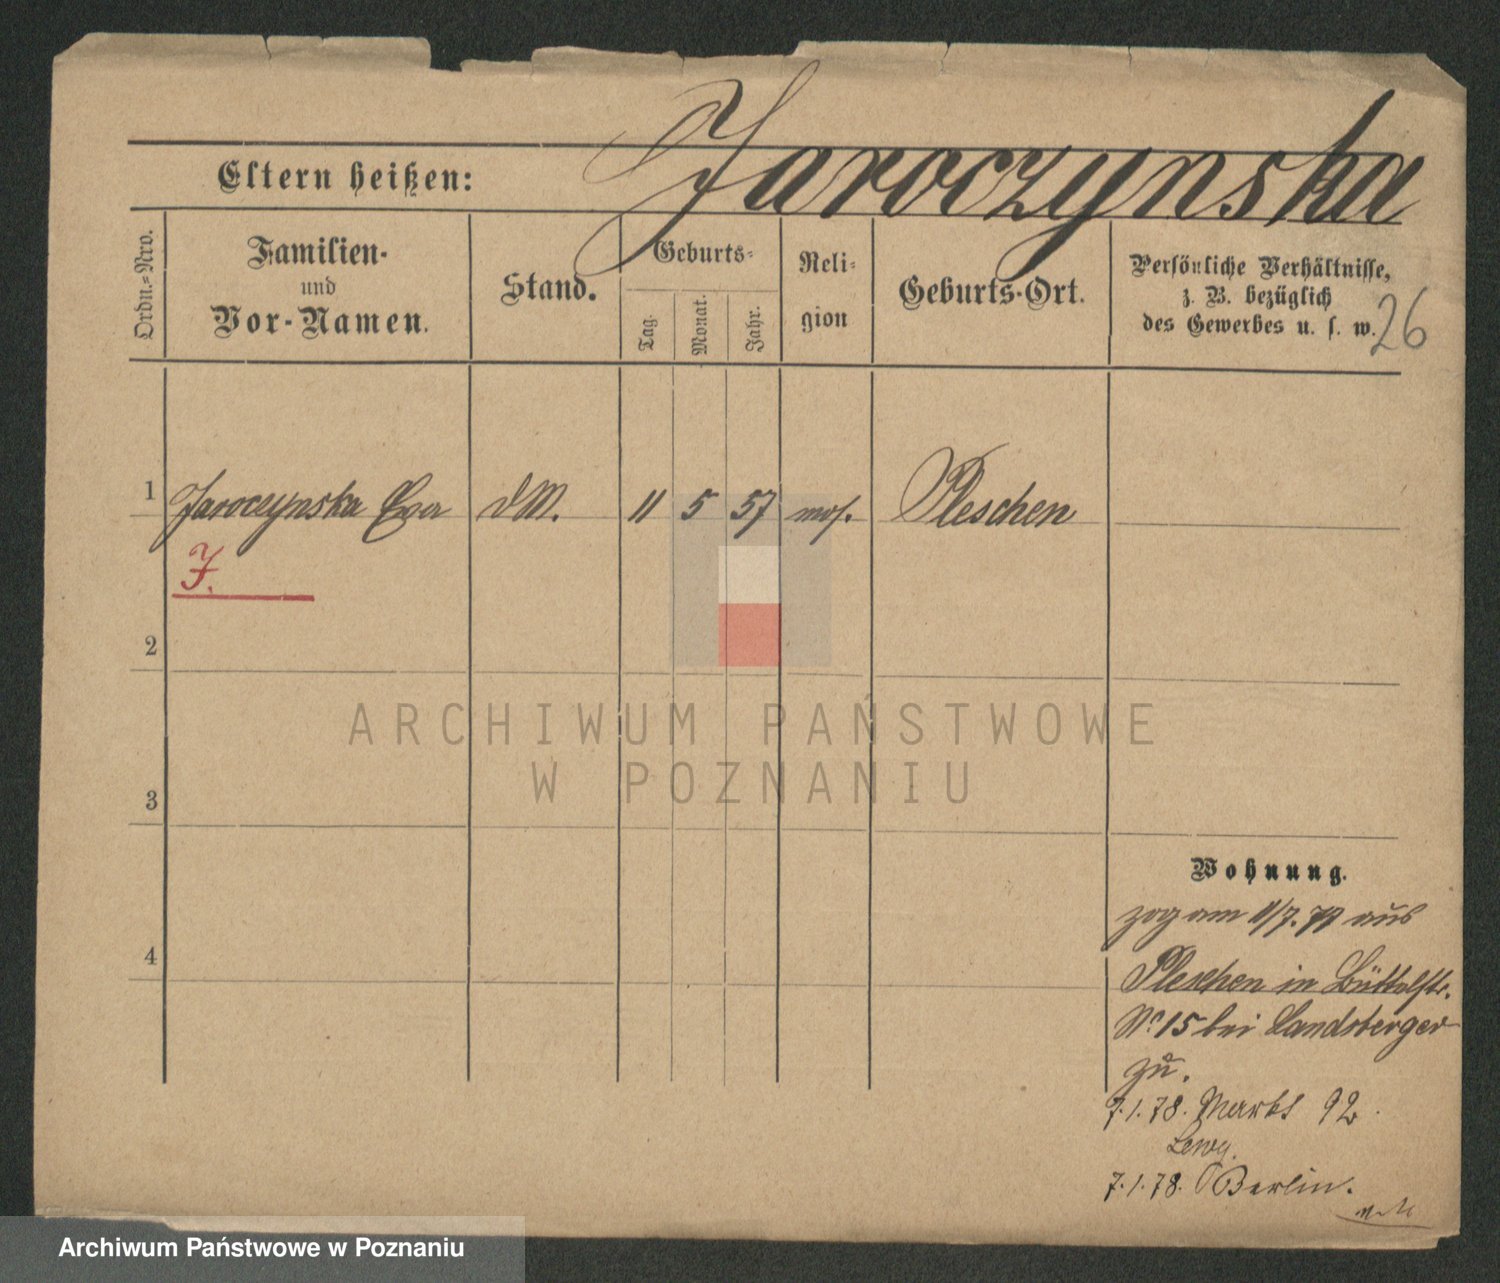 Jaroczynska
Eltern heißen:
Ordn.-Nro.
Familien-
und
Vor-Namen.
Stand.
Geburts-
Tag.
Monat.
Jahr.
Reli-
gion
Geburts-Ort.
Persönliche Verhältnisse,
z. B. bezüglich
des Gewerbes u. s. w.
26
1 Jaroczynska Eva dM. 11 5 57 mos. Pleschen
J.
2
ARCHIWUM PAŃSTWOWE
W POZNANIU
3
Wohnung.
zog am 11/7. 77 aus
4
Pleschen in Büttelstr.
No 15 bei Landsberger
zu.
7.1.78. Markt 92.
7.1.78. Berlin.
Archiwum Państwowe w Poznaniu